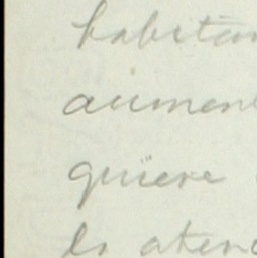 habitan
aumen
quiere
la aten